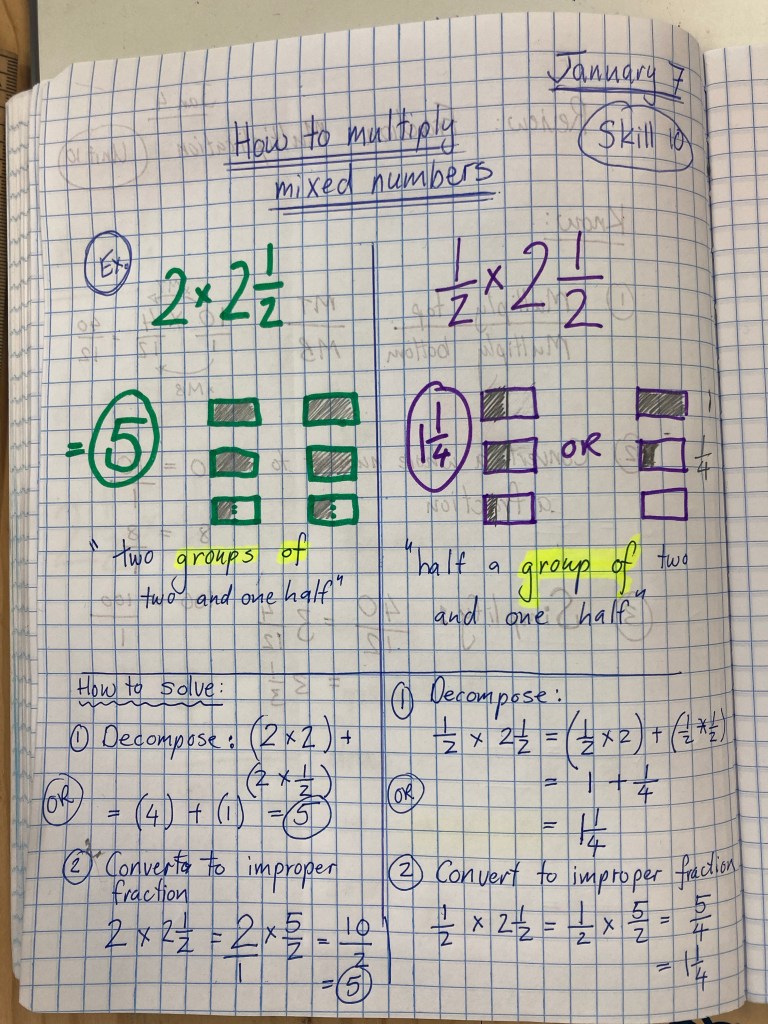 January 7
Skill 10
How to multiply
mixed numbers
Ex.
2 × 2 1/2
= 5
"two groups of
two and one half"
1/2 × 2 1/2
1 1/4
OR
1
1/4
"half a group of two
and one half"
How to solve:
① Decompose: (2 × 2) +
(2 × 1/2)
= (4) + (1) = 5
OR
② Convert to improper
fraction
2 × 2 1/2 = 2/1 × 5/2 = 10/2
= 5
① Decompose:
1/2 × 2 1/2 = (1/2 × 2) + (1/2 × 1/2)
= 1 + 1/4
OR
= 1 1/4
② Convert to improper fraction
1/2 × 2 1/2 = 1/2 × 5/2 = 5/4
= 1 1/4